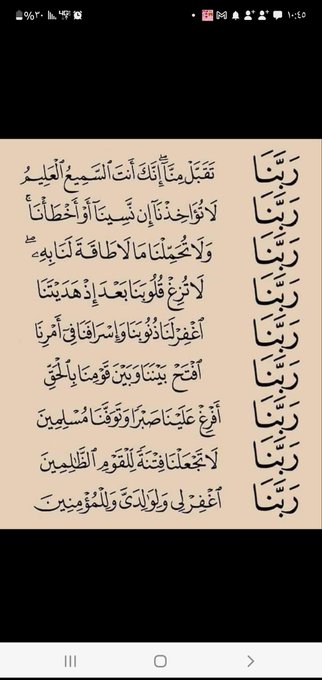 %٣٠ ١٠:٤٥
رَبَّنَا تَقَبَّلْ مِنَّآ ۖ إِنَّكَ أَنتَ ٱلسَّمِيعُ ٱلْعَلِيمُ
رَبَّنَا لَا تُؤَاخِذْنَآ إِن نَّسِينَآ أَوْ أَخْطَأْنَا ۚ
رَبَّنَا وَلَا تُحَمِّلْنَا مَا لَا طَاقَةَ لَنَا بِهِۦ ۖ
رَبَّنَا لَا تُزِغْ قُلُوبَنَا بَعْدَ إِذْ هَدَيْتَنَا
رَبَّنَا ٱغْفِرْ لَنَا ذُنُوبَنَا وَإِسْرَافَنَا فِىٓ أَمْرِنَا
رَبَّنَا ٱفْتَحْ بَيْنَنَا وَبَيْنَ قَوْمِنَا بِٱلْحَقِّ
رَبَّنَا أَفْرِغْ عَلَيْنَا صَبْرًا وَتَوَفَّنَا مُسْلِمِينَ
رَبَّنَا لَا تَجْعَلْنَا فِتْنَةً لِّلْقَوْمِ ٱلظَّٰلِمِينَ
رَبَّنَا ٱغْفِرْ لِى وَلِوَٰلِدَىَّ وَلِلْمُؤْمِنِينَ